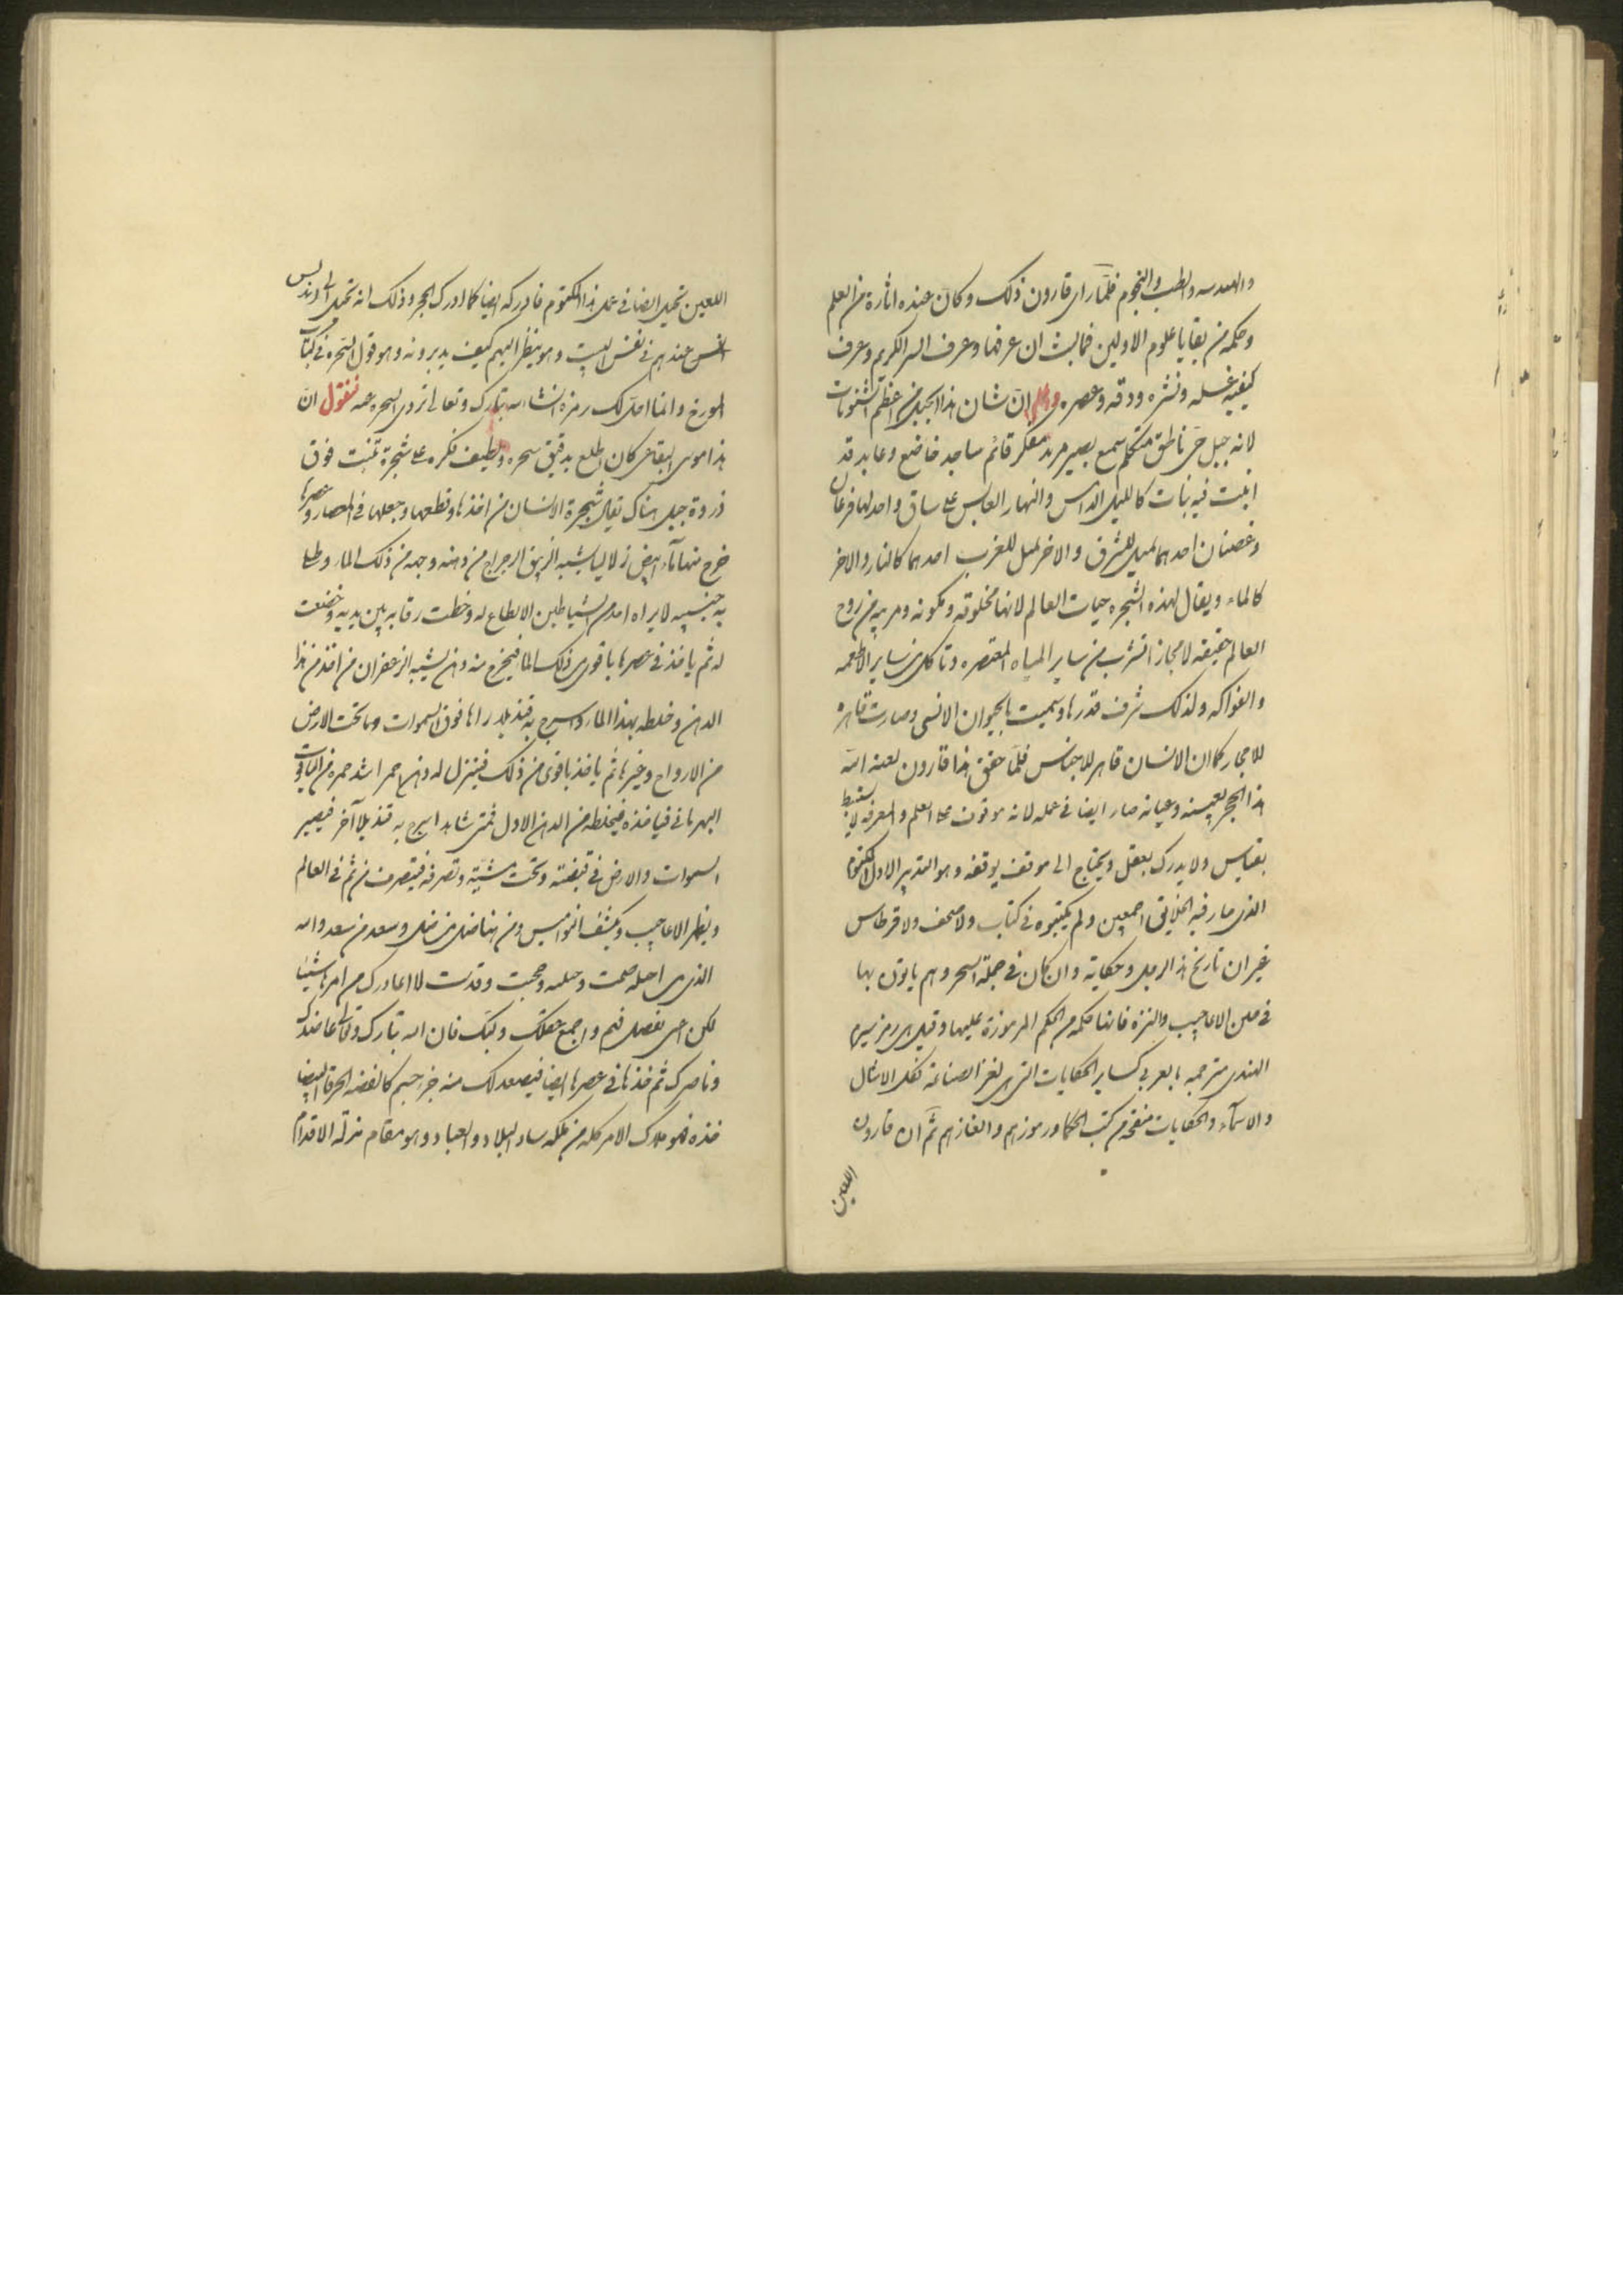 والهندسه والطب والنجوم فلما رای قارون ذلک وکان عنده اثارة من العلم
وحکمه من بقایا علوم الاولین فما لبث ان عرفها وعرف السر الکریم وعرف
کیفیة غسله ونشره ودقه وعصره واعلم ان شان هذا الجبل من اعظم الشئونات
لانه جبل حی ناطق متکلم سمیع بصیر مرید مفکر قائم ساجد خاضع وعابد قد
انبت فیه نبات کاللیل الدامس والنهار العابس علی ساق واحد لها فرعان
وغصنان احدهما یمیل للشرق والاخر یمیل للغرب احدهما کالنار والاخر
کالماء ویقال لهذه الشجره حیات العالم لانها مخلوقه ومکونه ومربیه من روح
العالم حقیقه لا مجازا تشرب من سایر المیاه المعتصره وتاکل من سایر الاطعمه
والفواکه ولذلک شرف قدرها وسمیت بالحیوان الانسی وصارت قاهره
للاحجار کما ان الانسان قاهر للاجناس فلما حقق هذا قارون لعنه الله
هذا الحجر بعینه وعیانه صار ایضا فی عمله لانه موقوف علی العلم والمعرفه لا یستنبط
بقیاس ولا یدرک بعقل ویحتاج الی موقف یوقفه وهو التدبیر الاول المکتوم
الذی حار فیه الخلایق اجمعین ولم یکتبوه فی کتاب ولا صحف ولا قرطاس
غیر ان تاریخ هذا الرجل وحکایته وان کان فی جملة السحر وهم یاتون بها
فی الاعاجیب والنزه فانها حکمه من الحکم المرموزة علیها وقیل هی رمز
الهندی مترجمه بالعربی کسایر الحکایات التی هی لغز الصناعة تلک الامثال
والاسماء والحکایات من کتب الحکما ورموزهم والغازهم ثم ان قارون
اللعین
اللعین تحیل ایضا فی عمل هذا المکتوم فادرکه ایضا کما ادرک الحجر وذلک انه تحیل
عندهم فی نفس البیت وهو ینظر الیهم کیف یدبرونه وهو قول السحره فی کتاب
المورخ وانا احل لک رمزه انشاء الله تبارک وتعالی السحره عنه فنقول ان
هذا موسی کان اطلع بدقیق سحره ولطیف فکره علی شجرة تنبت فوق
ذروة جبل هناک یقال شجرة الانسان من اخذها وقطعها وجعلها فی المعصار وعصرها
خرج منها ماء ابیض زلالیا یشبه الزیبق الرجراج من دهنه وجهه من ذلک الماء وطلا
به جنبیه لا یراه احد من الشیاطین الا یطاع له وخطت رقابه بین یدیه وخضعت
له ثم یاخذ فی عصرها باقوی من ذلک الما فیخرج منه دهن یشبه الزعفران من اخذ من هذا
الدهن وخلطه بهذا الماء واسرج به قندیلا راها فوق السموات وما تحت الارض
من الارواح وغیرها ثم یاخذ باقوی من ذلک فینزل له دهن احمر اشد حمره من الیاقوت
البهرمانی فیاخذه فیخلطه من الدهن الاول فمتی شاهد اسرج به قندیلا آخر فیصیر
السموات والارض فی قبضته وتحت مشیته وتصرفه فیتصرف من ثم فی العالم
ویظهر الاعاجیب ویکشف النوامیس ومن هنا ضل من ضل وسعد من سعد والله
الذی من اجله صمت وصلیت وحججت وقدست لا احد ادرک من امرها شیئا
لکن افهم واجمع عقلک ولبک فان الله تبارک وتعالی عاضدک
وناصرک ثم خذها فی عصرها ایضا فیصعد لک منه جزء جسم کالفضه المحرقه البیضا
فخذه فهو ملاک الامر کله من ملکه ساد البلاد والعباد وهو مقام مزلة الاقدام